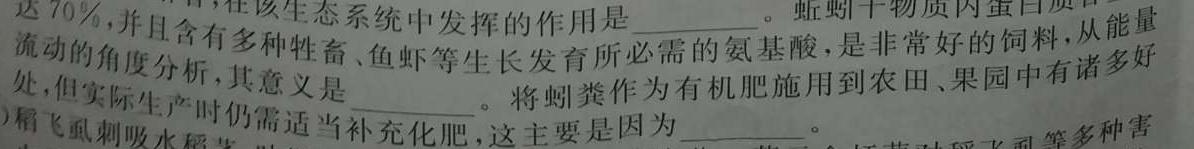 在该生态系统中发挥的作用是________。蚯蚓干物质内蛋白质
达70%,并且含有多种牲畜、鱼虾等生长发育所必需的氨基酸,是非常好的饲料,从能量
流动的角度分析,其意义是________。将蚓粪作为有机肥施用到农田、果园中有诸多好
处,但实际生产时仍需适当补充化肥,这主要是因为________。
)稻飞虱刺吸水稻 等多种害